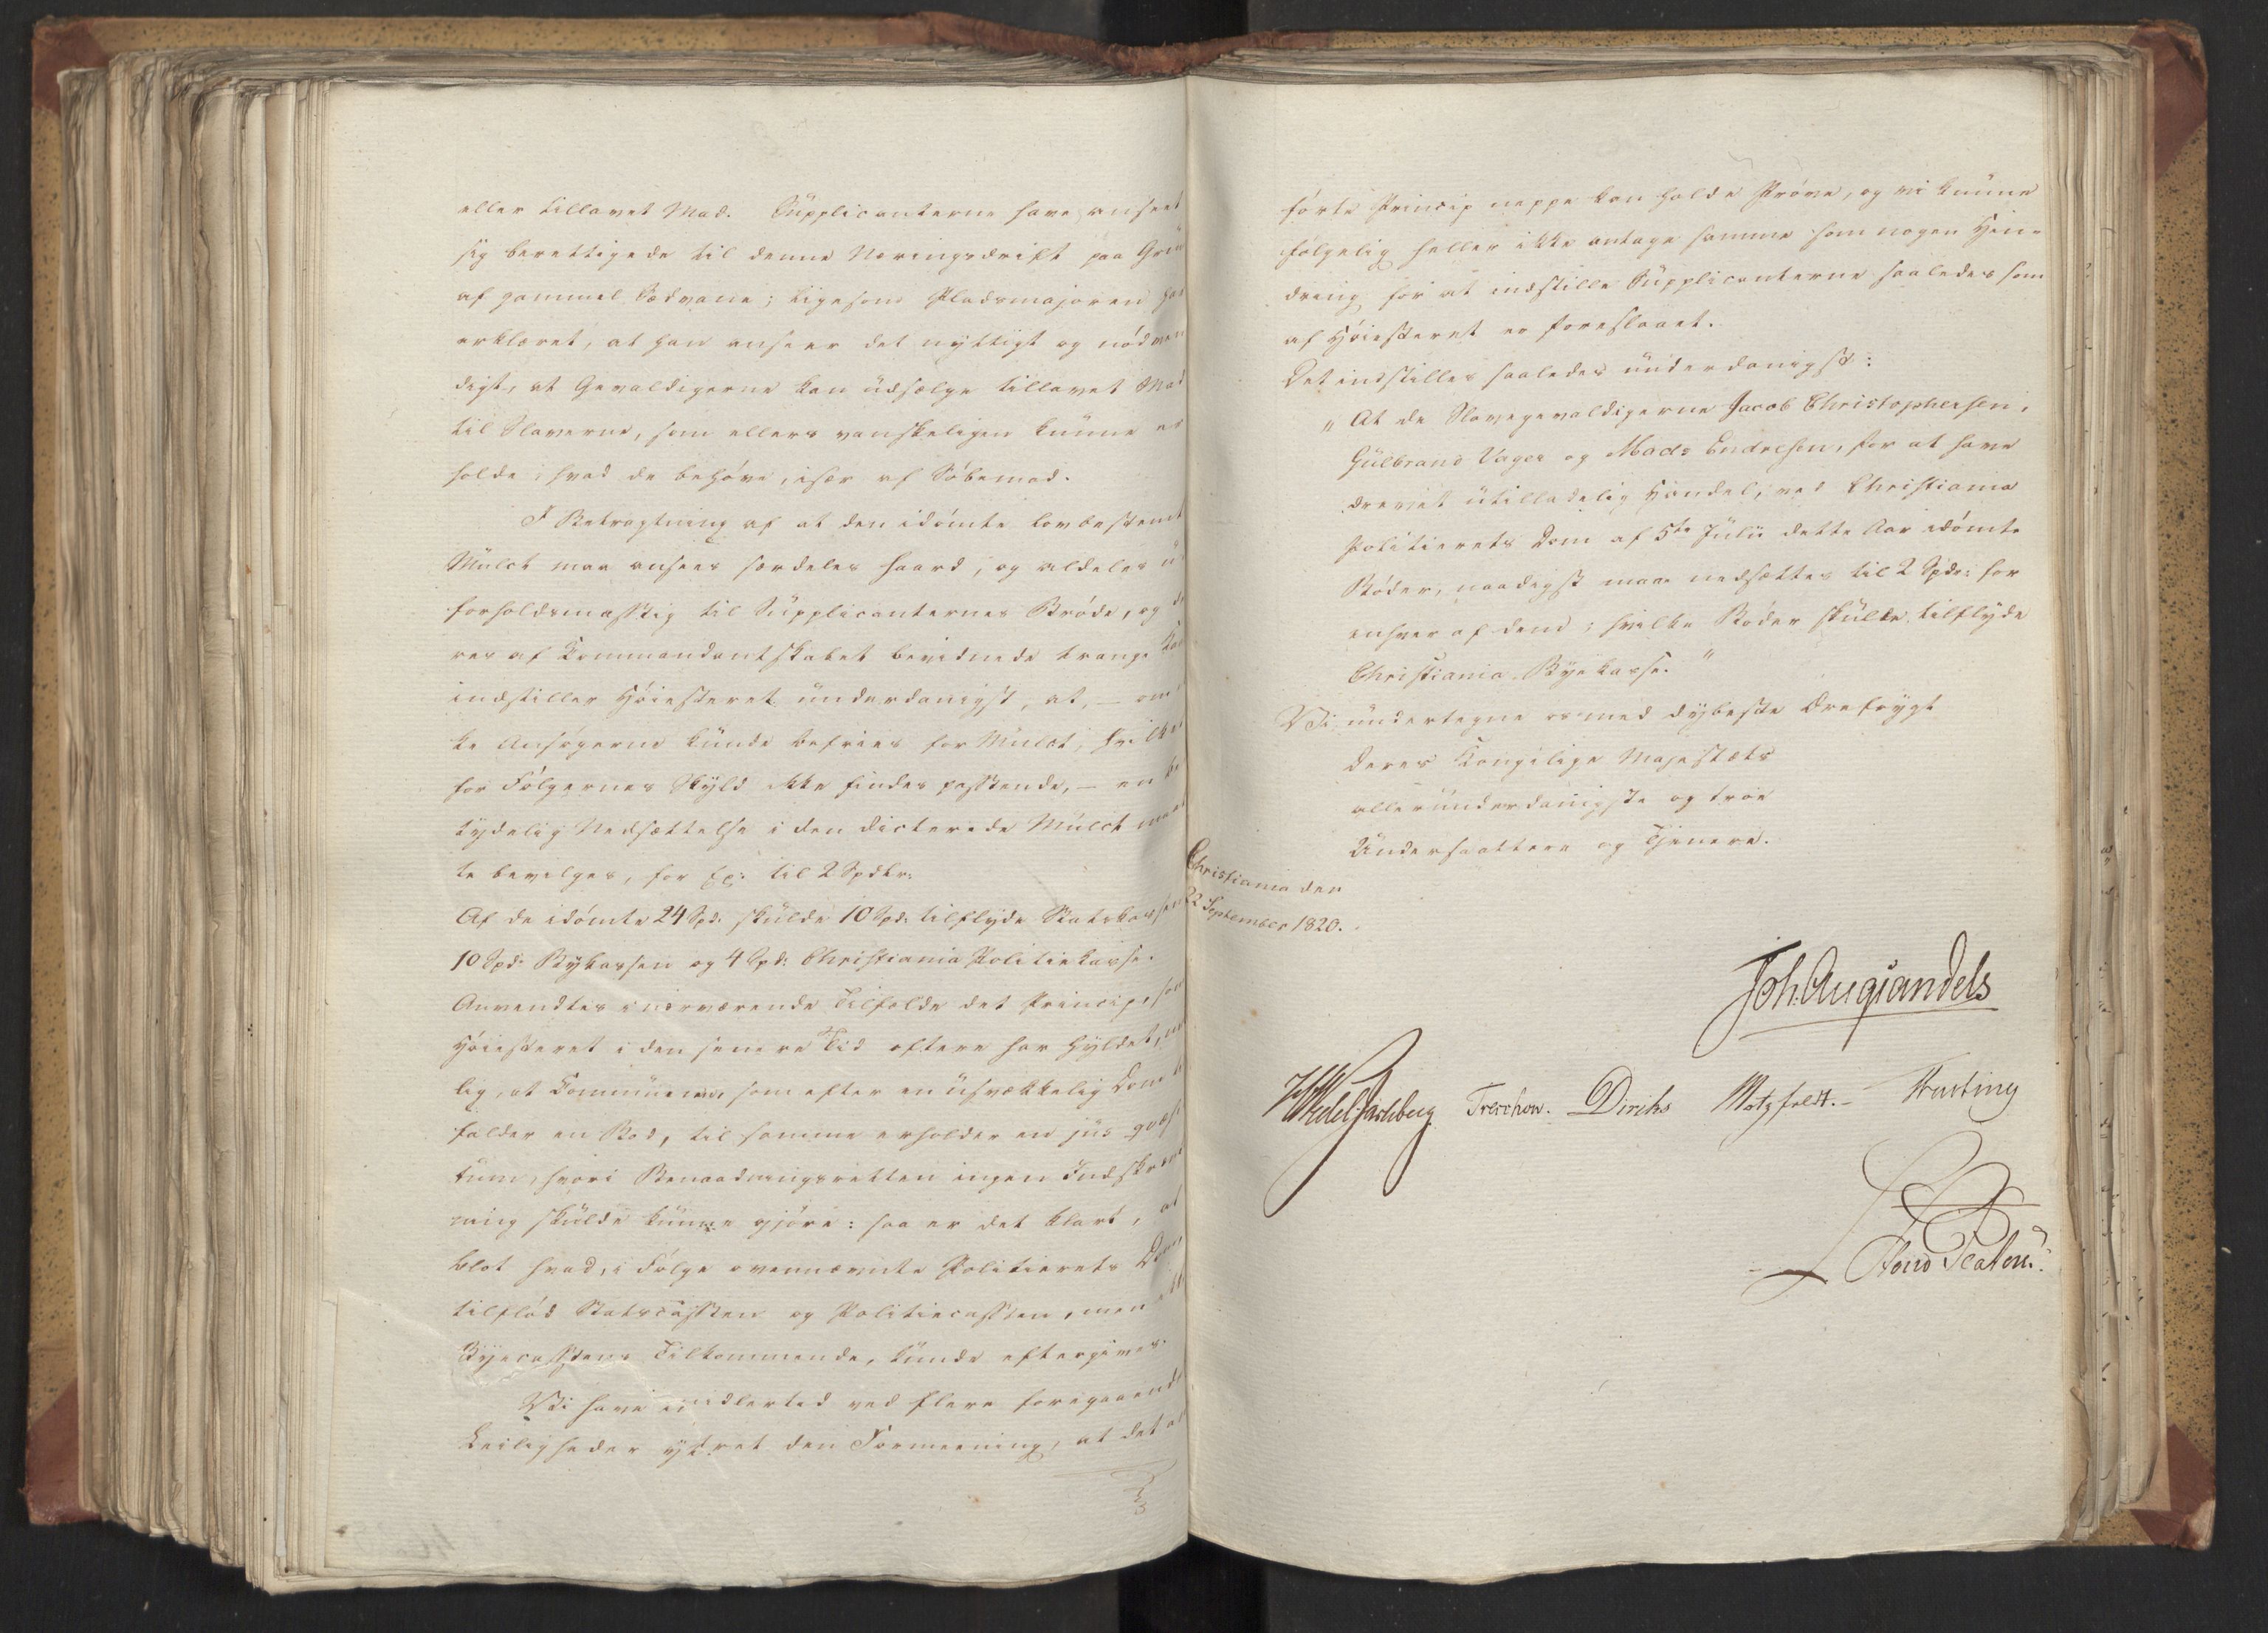 eller tillavet Mad. Supplicanterne have anseet
sig berettigede til denne Næringsdrift paa Grun
af gammel Sædvane; ligesom Pladsmajoren har
erklæret, at han anseer det nyttigt og nødven
digt, at Gevaldigerne kan udsælge tillavet Mad
til Slaverne, som ellers vanskeligen kunne er
holde, hvad de behøve, især af Søbemad.
I Betragtning af at den idømte lovbestemt
Mulct maa ansees særdeles haard, og aldeles u
forholdsmæssig til Supplicanternes Brøde, og de
res af Kommandantskabet bevidnede trange Kaar
indstiller Høiesteret underdanigst, at, – om
ke Ansøgerne kunde befries for Mulct, hvilket
for Følgernes Skyld ikke findes passende, – en be
tydelig Nedsættelse i den dicterede Mulct maat
te bevilges, for Ex: til 2 Spdlr:
Af de idømte 24 Spd: skulde 10 Spd: tilflyde Statskassen
10 Spd: Bykassen og 4 Spd: Christiania Politiekasse.
Anvendtes i nærværende Tilfælde det Princip, som
Høiesteret i den senere Tid oftere har hyldet, nem
lig, at Communerne, som efter en usvækkelig Dom til
falder en Bod, til samme erholder en jus qvæsi
tum, hvori Benaadningsretten ingen Indskrænk
ning skulde kunne gjøre: saa er det klart, at
blot hvad, i Følge ovennævnte Politierets Dom,
tilflød Statscassen og Politiecassen, men ikke
Byecassens Tilkommende, kunde eftergives.
Vi have imidlertid ved flere foregaaende
Leiligheder yttret den Formeening, at det an
førte Princip neppe kan holde Prøve, og vi kunne
følgelig heller ikke antage samme som nogen Hin-
dring for at indstille Supplicanterne saaledes som
af Høiesteret er foreslaaet.
Det indstilles saaledes underdanigst:
„At de Slavegevaldigerne Jacob Christophersen,
Gulbrand Vager og Mads Endresen, for at have
drevet utilladelig Handel, ved Christiania
Politierets Dom af 5te Julii dette Aar idømte
Bøder, naadigst maae nedsættes til 2 Spdr: for
enhver af dem; hvilke Bøder skulle tilflyde
Christiania Byekasse."
Vi undertegne os med dybeste Ærefrygt
Deres Kongelige Majestæts
allerunderdanigste og troe
Undersaattere og Tjenere.
Christiania den
22 September 1820.
Joh. Aug. Sandels
HWedelJarlsberg. Treschow. Diriks Motzfeldt. – Fasting